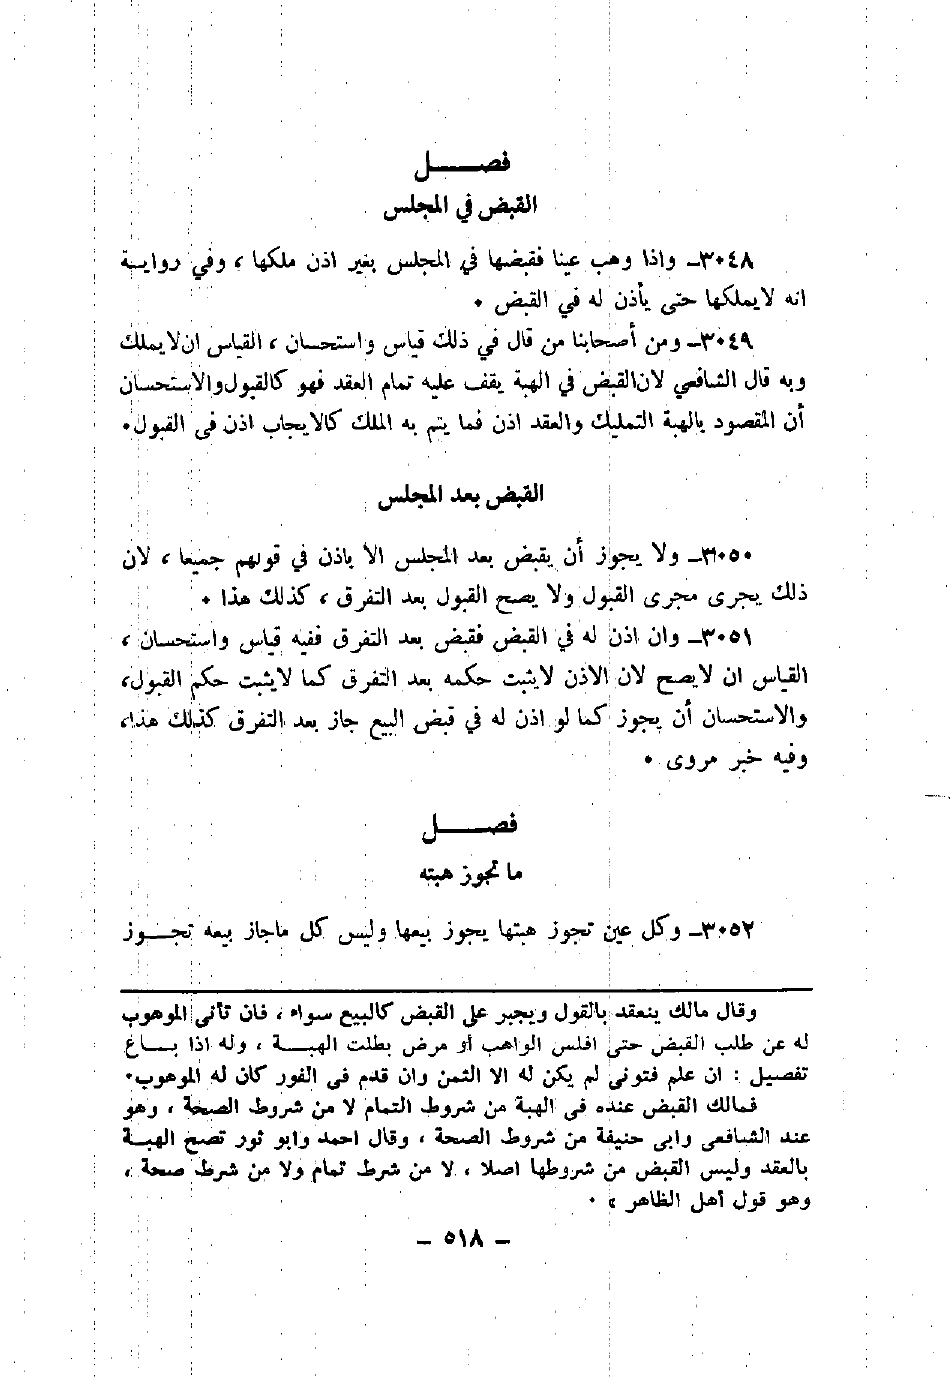 فصـــــل
القبض في المجلس
٣٠٤٨ـ واذا وهب عينا فقبضها في المجلس بغير اذن ملكها ، وفي روايـة
انه لايملكها حتى يأذن له في القبض ٠
٣٠٤٩ـ ومن أصحابنا من قال في ذلك قياس واستحسان ، القياس ان لايملك
وبه قال الشافعي لان القبض في الهبة يقف عليه تمام العقد فهو كالقبول والاستحسان
أن المقصود بالهبة التمليك والعقد اذن فما يتم به الملك كالايجاب اذن فى القبول٠
القبض بعد المجلس
٣٠٥٠ـ ولا يجوز أن يقبض بعد المجلس الا باذن في قولهم جميعا ، لان
ذلك يجرى مجرى القبول ولا يصح القبول بعد التفرق ، كذلك هذا ٠
٣٠٥١ـ وان اذن له في القبض فقبض بعد التفرق ففيه قياس واستحسان ،
القياس ان لايصح لان الاذن لايثبت حكمه بعد التفرق كما لايثبت حكم القبول،
والاستحسان أن يجوز كما لو اذن له في قبض البيع جاز بعد التفرق كذلك هذا،
وفيه خبر مروى ٠
فصـــــل
ما تجوز هبته
٣٠٥٢ـ وكل عين تجوز هبتها يجوز بيعها وليس كل ماجاز بيعه تجـــوز
وقال مالك ينعقد بالقول ويجبر على القبض كالبيع سواء ، فان تأنى الموهوب
له عن طلب القبض حتى افلس الواهب أو مرض بطلت الهبـــة ، وله اذا بـــاع
تفصيل : ان علم فتونى لم يكن له الا الثمن وان قدم فى الفور كان له الموهوب٠
فمالك القبض عنده فى الهبة من شروط التمام لا من شروط الصحة ، وهو
عند الشافعى وابى حنيفة من شروط الصحة ، وقال احمد وابو ثور تصح الهبـة
بالعقد وليس القبض من شروطها اصلا ، لا من شرط تمام ولا من شرط صحة ،
وهو قول أهل الظاهر » ٠
ـ ٥١٨ ـ